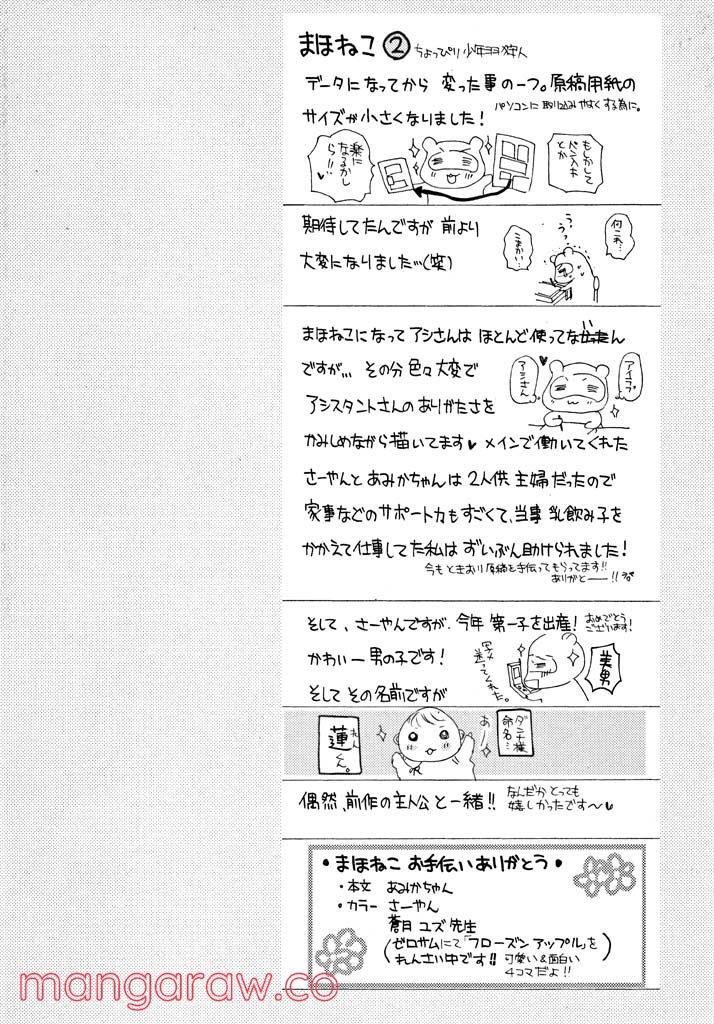 まほねこ ②
データになってから 変った事の一つ。原稿用紙の
パソコンに取り込みやすくする為に。
サイズが小さくなりました！
もしかして
ペン入れ
とか
楽に
なるかし
ら!!♥
期待してたんですが 前より
大変になりました…(笑)
何これ…
こまかい…
まほねこになって アシさんは ほとんど使ってな
ん
ですが,,, その分 色々大変で
アシスタントさんの ありがたさを
アシさん
かみしめながら描いてます♥ メインで働いてくれた
さーやんと あみかちゃんは 2人供 主婦だったので
家事などのサポート力も すごくて、当時 乳飲み子を
かかえて仕事してた私は ずいぶん助けられました！
今も ときおり 原稿を手伝ってもらってます!!
ありがとーーー!!
そして、さーやんですが、今年 第一子を出産！
おめでとう
ございます！
かわいー男の子です！
写メ
送ってくれた。
美男
そして その名前ですが
ダンナ様
命名…
あー
蓮くん。
れん
偶然、前作の主人公と一緒!!
なんだか とっても
嬉しかったです〜♥
• まほねこ お手伝いありがとう •
・本文 あみかちゃん
・カラー さーやん
蒼月 ユズ 先生
(ゼロサムにて「フローズン アップル」を
れんさい中です!! 可愛い&面白い
4コマだよ!!)
mangaraw.co